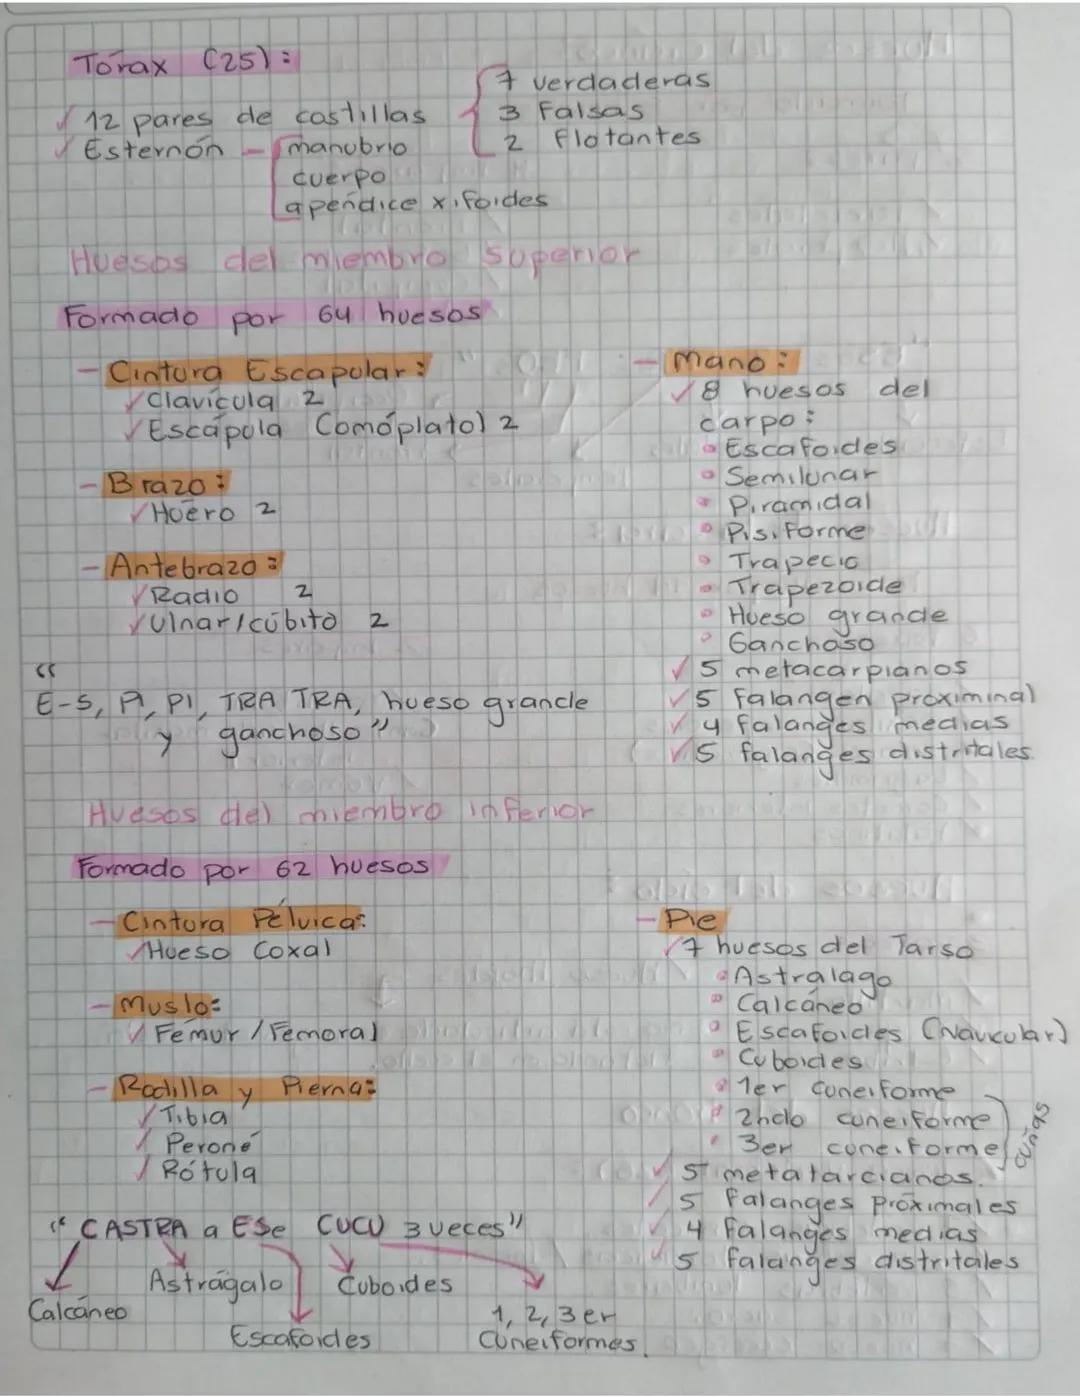 Torax (25):
✓ 12 pares de castillas
7 verdaderas
3 Falsas
2 flotantes
✓ Esternón - manubrio
cuerpo
apéndice xifoides
Huesos del miembro superior
Formado por 64 huesos
- Cintura Escapular:
✓ Clavícula 2
✓ Escápula (omóplato) 2
- Brazo:
✓ Húero 2
- Antebrazo:
✓ Radio 2
✓ Ulnar/cúbito 2
"
E-S, PI, PI, TRA TRA, hueso grande
y ganchoso"
- Mano:
✓ 8 huesos del
carpo:
• Escafoides
• Semilunar
• Piramidal
• Pisiforme
• Trapecio
• Trapezoide
• Hueso grande
• Ganchoso
✓ 5 metacarpianos
✓ 5 Falangen proximinal
✓ 4 falanges medias
✓ 5 falanges distritales.
Huesos del miembro inferior
Formado por 62 huesos
- Cintura Pélvica:
✓ Hueso Coxal
- Muslo:
✓ Fémur / Femoral
- Rodilla y Pierna:
✓ Tibia
✓ Peroné
✓ Rótula
- Pie
✓ 7 huesos del Tarso
• Astralago
• Calcáneo
• Escafoides (Navicular)
• Cuboides
• 1er cuneiforme
• 2ndo cuneiforme
• 3er cuneiforme
cuñas
✓ 5 metatarcianos.
✓ 5 Falanges Próximales
✓ 4 Falanges medias
✓ 5 falanges distritales
"CASTRA a ESe CUCU 3 veces"
Calcáneo
Astrágalo
Escafoides
Cuboides
1, 2, 3er
Cuneiformes.